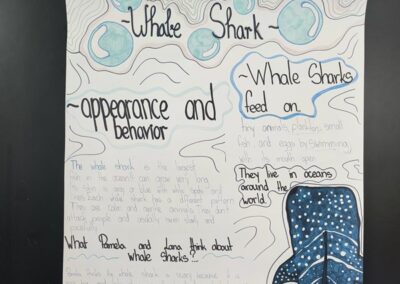 ~Whale Shark~
~appearance and
behavior
The whale shark is the largest
fish in the ocean. It can grow very long.
Its skin is gray or blue with white spots and
lines. Each whale shark has a different pattern.
They are calm and gentle animals. They don't
attack people and usually swim slowly and
peacefully.
~Whale Sharks
feed on
tiny animals, plankton, small
fish, and eggs by swimming
with its mouth open
They live in oceans
around the
world.
What Pamela and Lana think about
whale sharks..?
Pamela thinks the whale shark is scary because it is